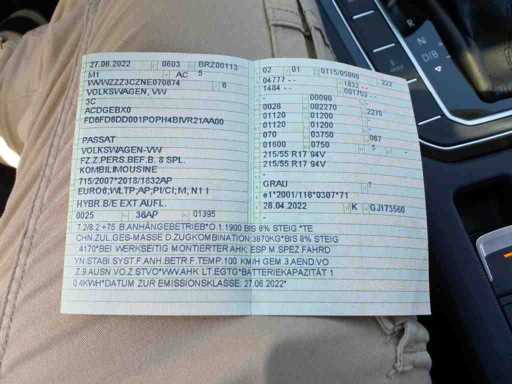 27.06.2022 0603 BRZ00113
M1 AC 5
WVWZZZ3CZNE070874 6
VOLKSWAGEN, VW
3C
ACDGEBX0
FD6FD6DD001POPH4BIVR21AA00
PASSAT
VOLKSWAGEN-VW
FZ.Z.PERS.BEF.B. 8 SPL.
KOMBILIMOUSINE
715/2007*2018/1832AP
EURO6;WLTP;AP;PI/CI;M, N1 I
HYBR.B/E EXT AUFL.
0025 36AP 01395
02 01 0115/05000 222
04777 --
1484 --
00090 -
0028 002270 2270
01120 01200
01120 01200
070 03750 067
01600 0750 5
215/55 R17 94V
215/55 R17 94V
GRAU 7
e1*2001/116*0307*71
28.04.2022 K GJ173560
7.2/8.2:+75 B.ANHÄNGEBETRIEB*O.1:1900 BIS 8% STEIG.*TE
CHN.ZUL.GES-MASSE D.ZUGKOMBINATION:3870KG*BIS 8% STEIG
4170*BEI WERKSEITIG MONTIERTER AHK: ESP M.SPEZ.FAHRD
YN.STABI.SYST.F.ANH.BETR.F.TEMP.100 KM/H GEM.3.AEND.VO
Z.9.AUSN.VO.Z.STVO*VW AHK LT.EGTG*BATTERIEKAPAZITÄT 1
0.4KWH*DATUM ZUR EMISSIONSKLASSE: 27.06.2022*
R
N
D/B